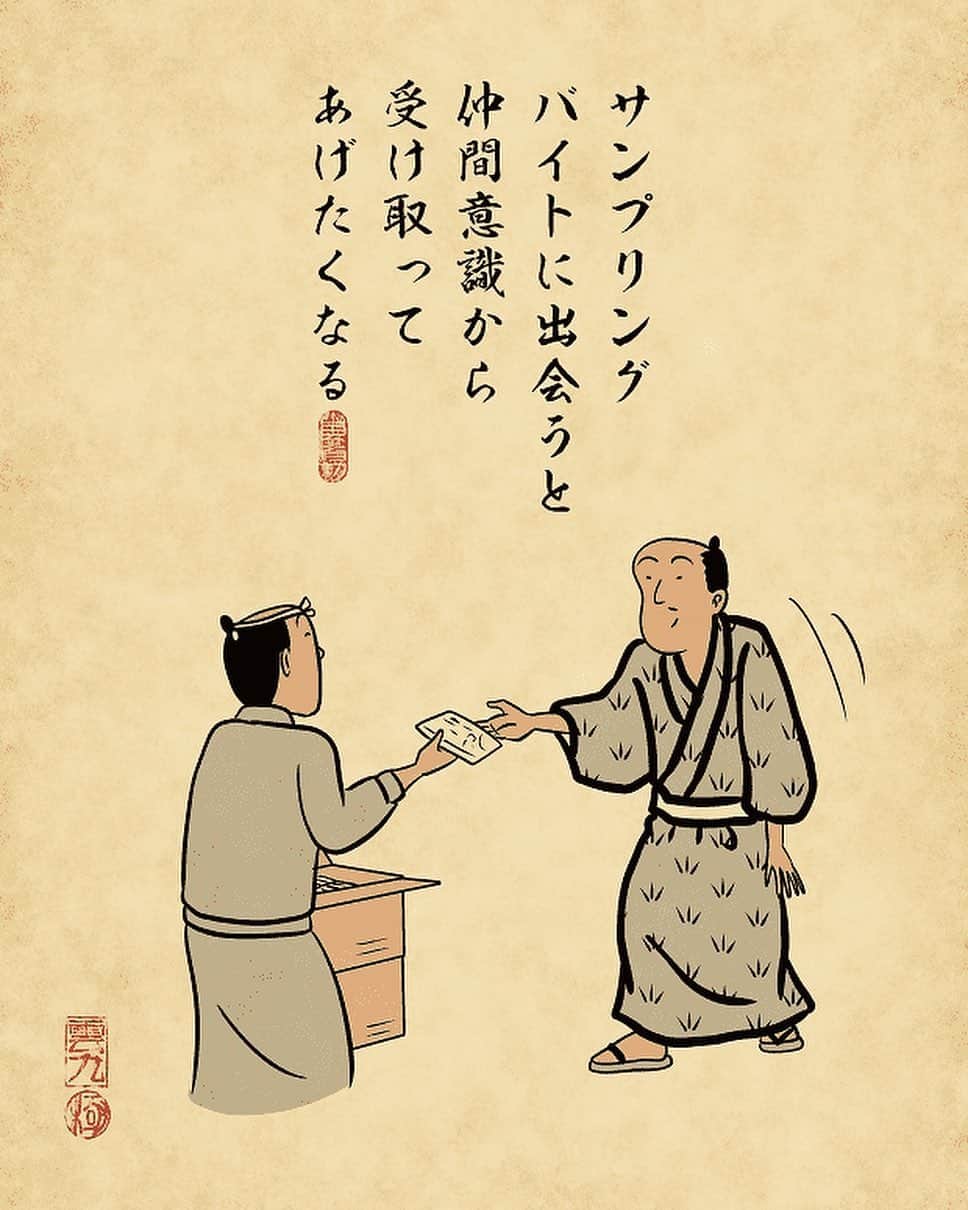 サンプリング
バイトに出会うと
仲間意識から
受け取って
あげたくなる